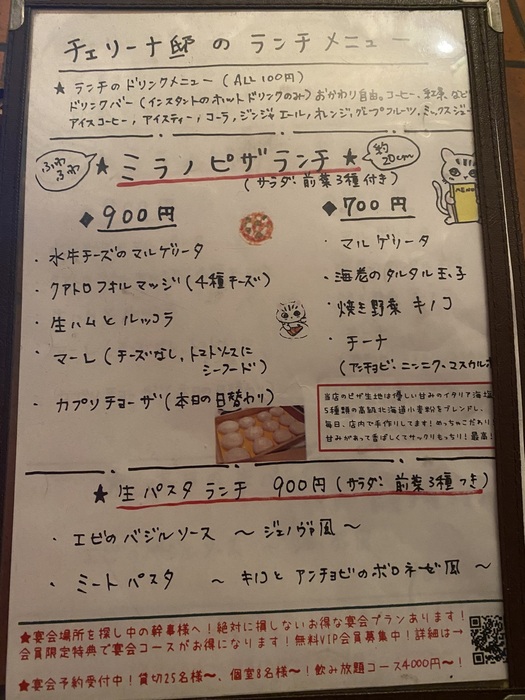 チェリーナ邸 の ランチメニュー
★ ランチの ドリンクメニュー (ALL 100円)
ドリンクバー (インスタントのホットドリンクのみ) おかわり自由。コーヒー、紅茶、など
アイスコーヒー, アイスティー, コーラ, ジンジャエール, オレンジ, グレープフルーツ, ミックスジュー
ふわふわ
★ ミラノピザランチ ★
約20cm
(サラダ・前菜3種付き)
MENU
◆ 900円
・ 水牛チーズのマルゲリータ
・ クアトロフォルマッジ (4種チーズ)
・ 生ハムとルッコラ
・ マーレ (チーズなし, トマトソースに
シーフード)
・ カプリチョーザ (本日の日替わり)
◆ 700円
・ マルゲリータ
・ 海老のタルタル玉子
・ 焼き野菜 キノコ
・ チーナ
(アンチョビ・ニンニク・マスカルポ
当店のピザ生地は優しい甘みのイタリア海塩
5種類の高級北海道小麦粉をブレンドし、
毎日、店内で手作りしてます!めっちゃこだわり
甘みがあって香ばしくてサックリもっちり!最高!
★ 生パスタ ランチ 900円 (サラダ・前菜3種つき)
・ エビのバジルソース 〜 ジェノヴァ風 〜
・ ミートパスタ 〜 キノコと アンチョビのボロネーゼ風 〜
★宴会場所を探し中の幹事様へ!絶対に損しないお得な宴会プランあります!
会員限定特典で宴会コースがお得になります!無料VIP会員募集中!詳細は→
★宴会予約受付中!貸切25名様〜、個室8名様〜!飲み放題コース4000円〜!